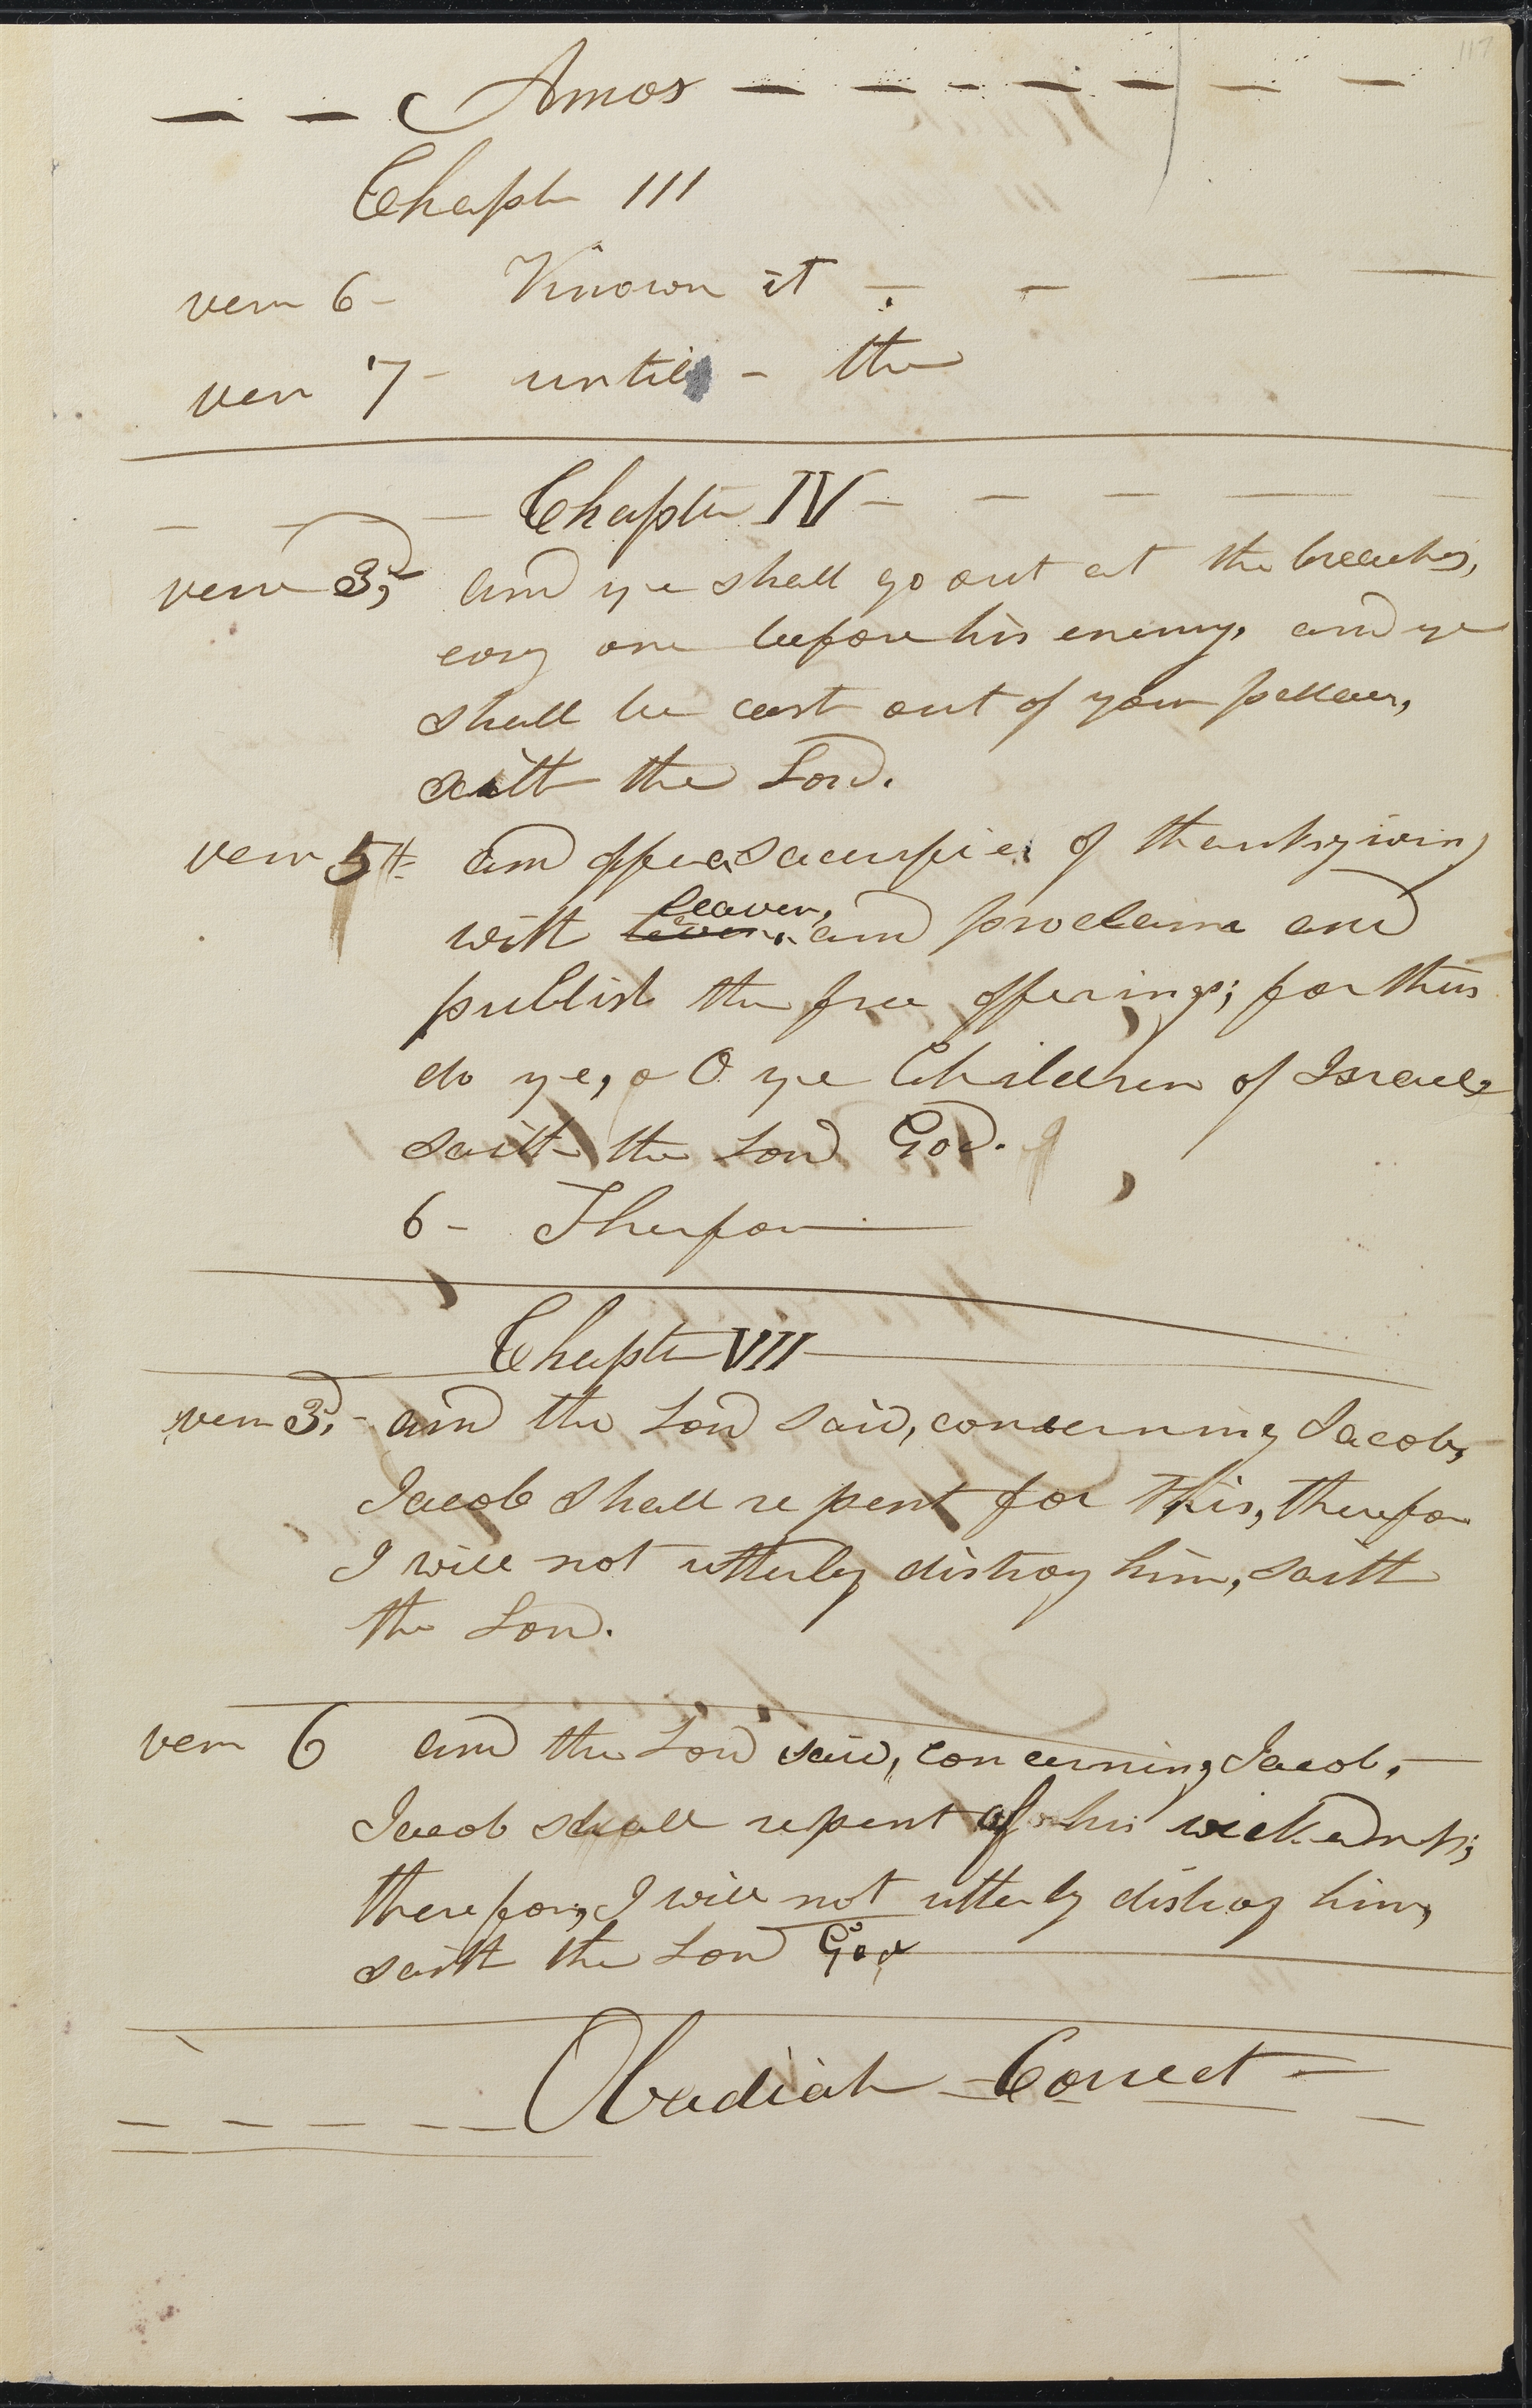 117
Amos
Chapter III
verse 6 - Known it
verse 7 - until - the
Chapter IV
verse 3d, and ye shall go out at the breaches,
every one before his enemy, and ye
shall be cast out of your pallaces,
saith the Lord.
verse 5th and offer a sacrifice of thanksgiving
leaven,
with leven, and proclaim and
publish the free offerings; for thus
do ye, O ye Children of Israel,
saith the Lord God.
6 - Therefore
Chapter VII
verse 3d, - and the Lord said, concerning Jacob,
Jacob shall repent for this, therefore
I will not utterly distroy him, saith
the Lord.
verse 6 and the Lord said, concerning Jacob,
Jacob shall repent of his wickedness;
therefore, I will not utterly distroy him,
saith the Lord God
Obadiah Correct